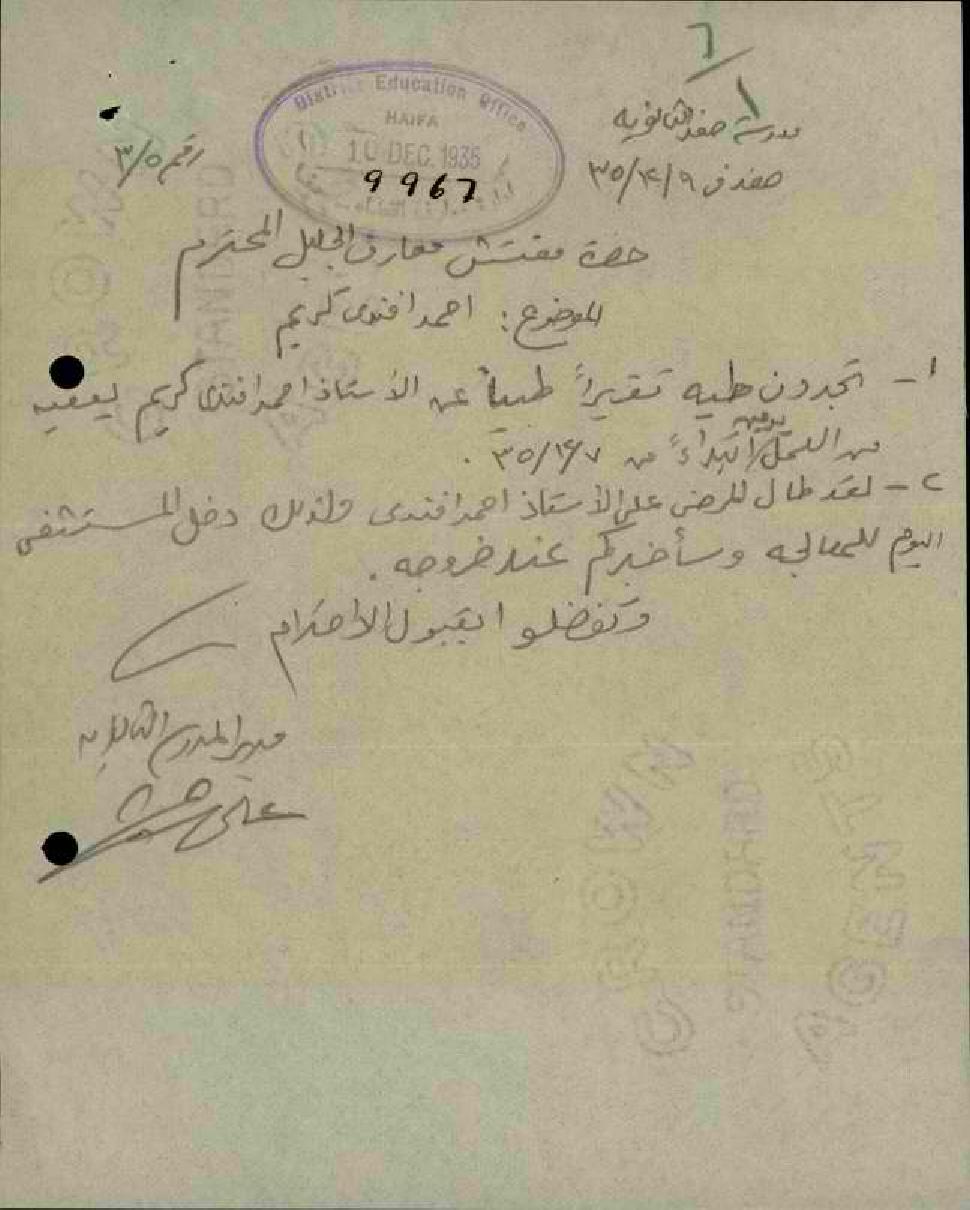 ٦/١
مدرسة صفد الثانويه
صفد في ٣٥/١٢/٩
رقم ٣/٥
District Education Office
HAIFA
10 DEC. 1935
9967
حضرة مفتش معارف الجليل المحترم
الموضوع: احمد افندي كريم
١- تجدون طيه تقريراً طبياً عن الأستاذ احمد افندي كريم يعفيه
يومين
من العمل ابتداءً من ٣٥/١٢/٧.
٢- لقد طال المرض على الأستاذ احمد افندى ولذلك دخل المستشفى
اليوم للمعالجه وسأخبركم عند خروجه.
وتفضلوا بقبول الاحترام
مدير المدرسة الثانويه
علي
CROWN
STANDARD
AGENTS